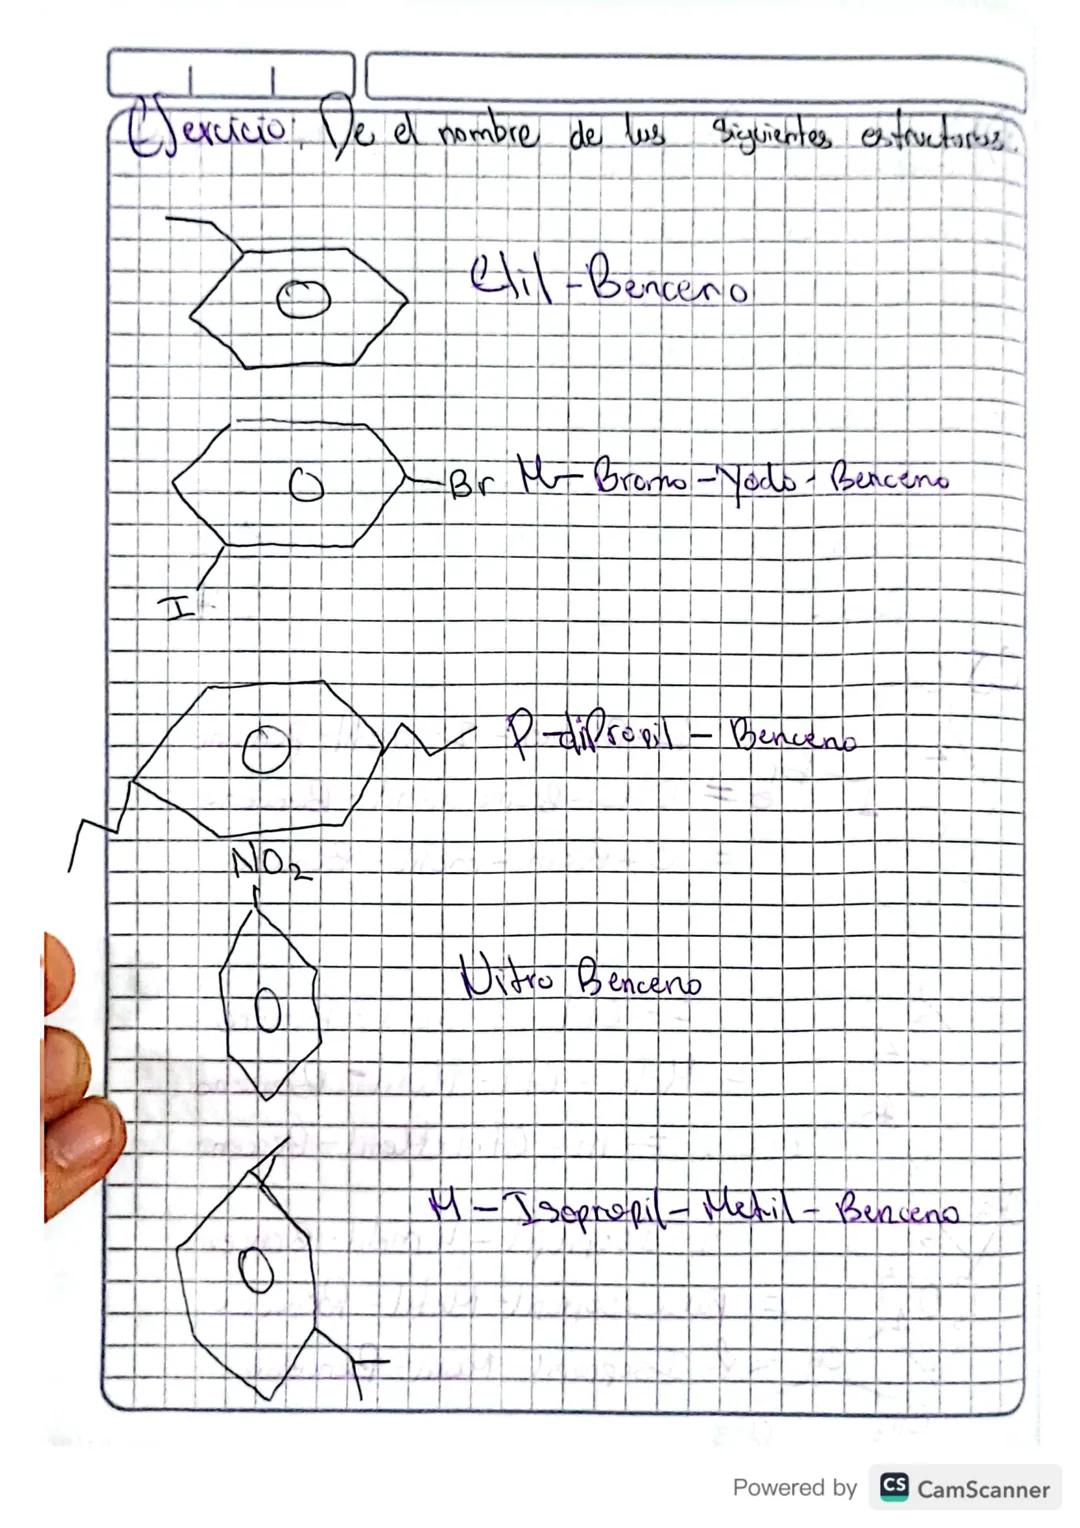 Ejercicio: De el nombre de las siguientes estructuras.
Etil-Benceno
Br M-Bromo-Yodo-Benceno
I
P-diPropil-Benceno
NO2
Nitro Benceno
M-Isopropil-Metil-Benceno
Powered by CS CamScanner